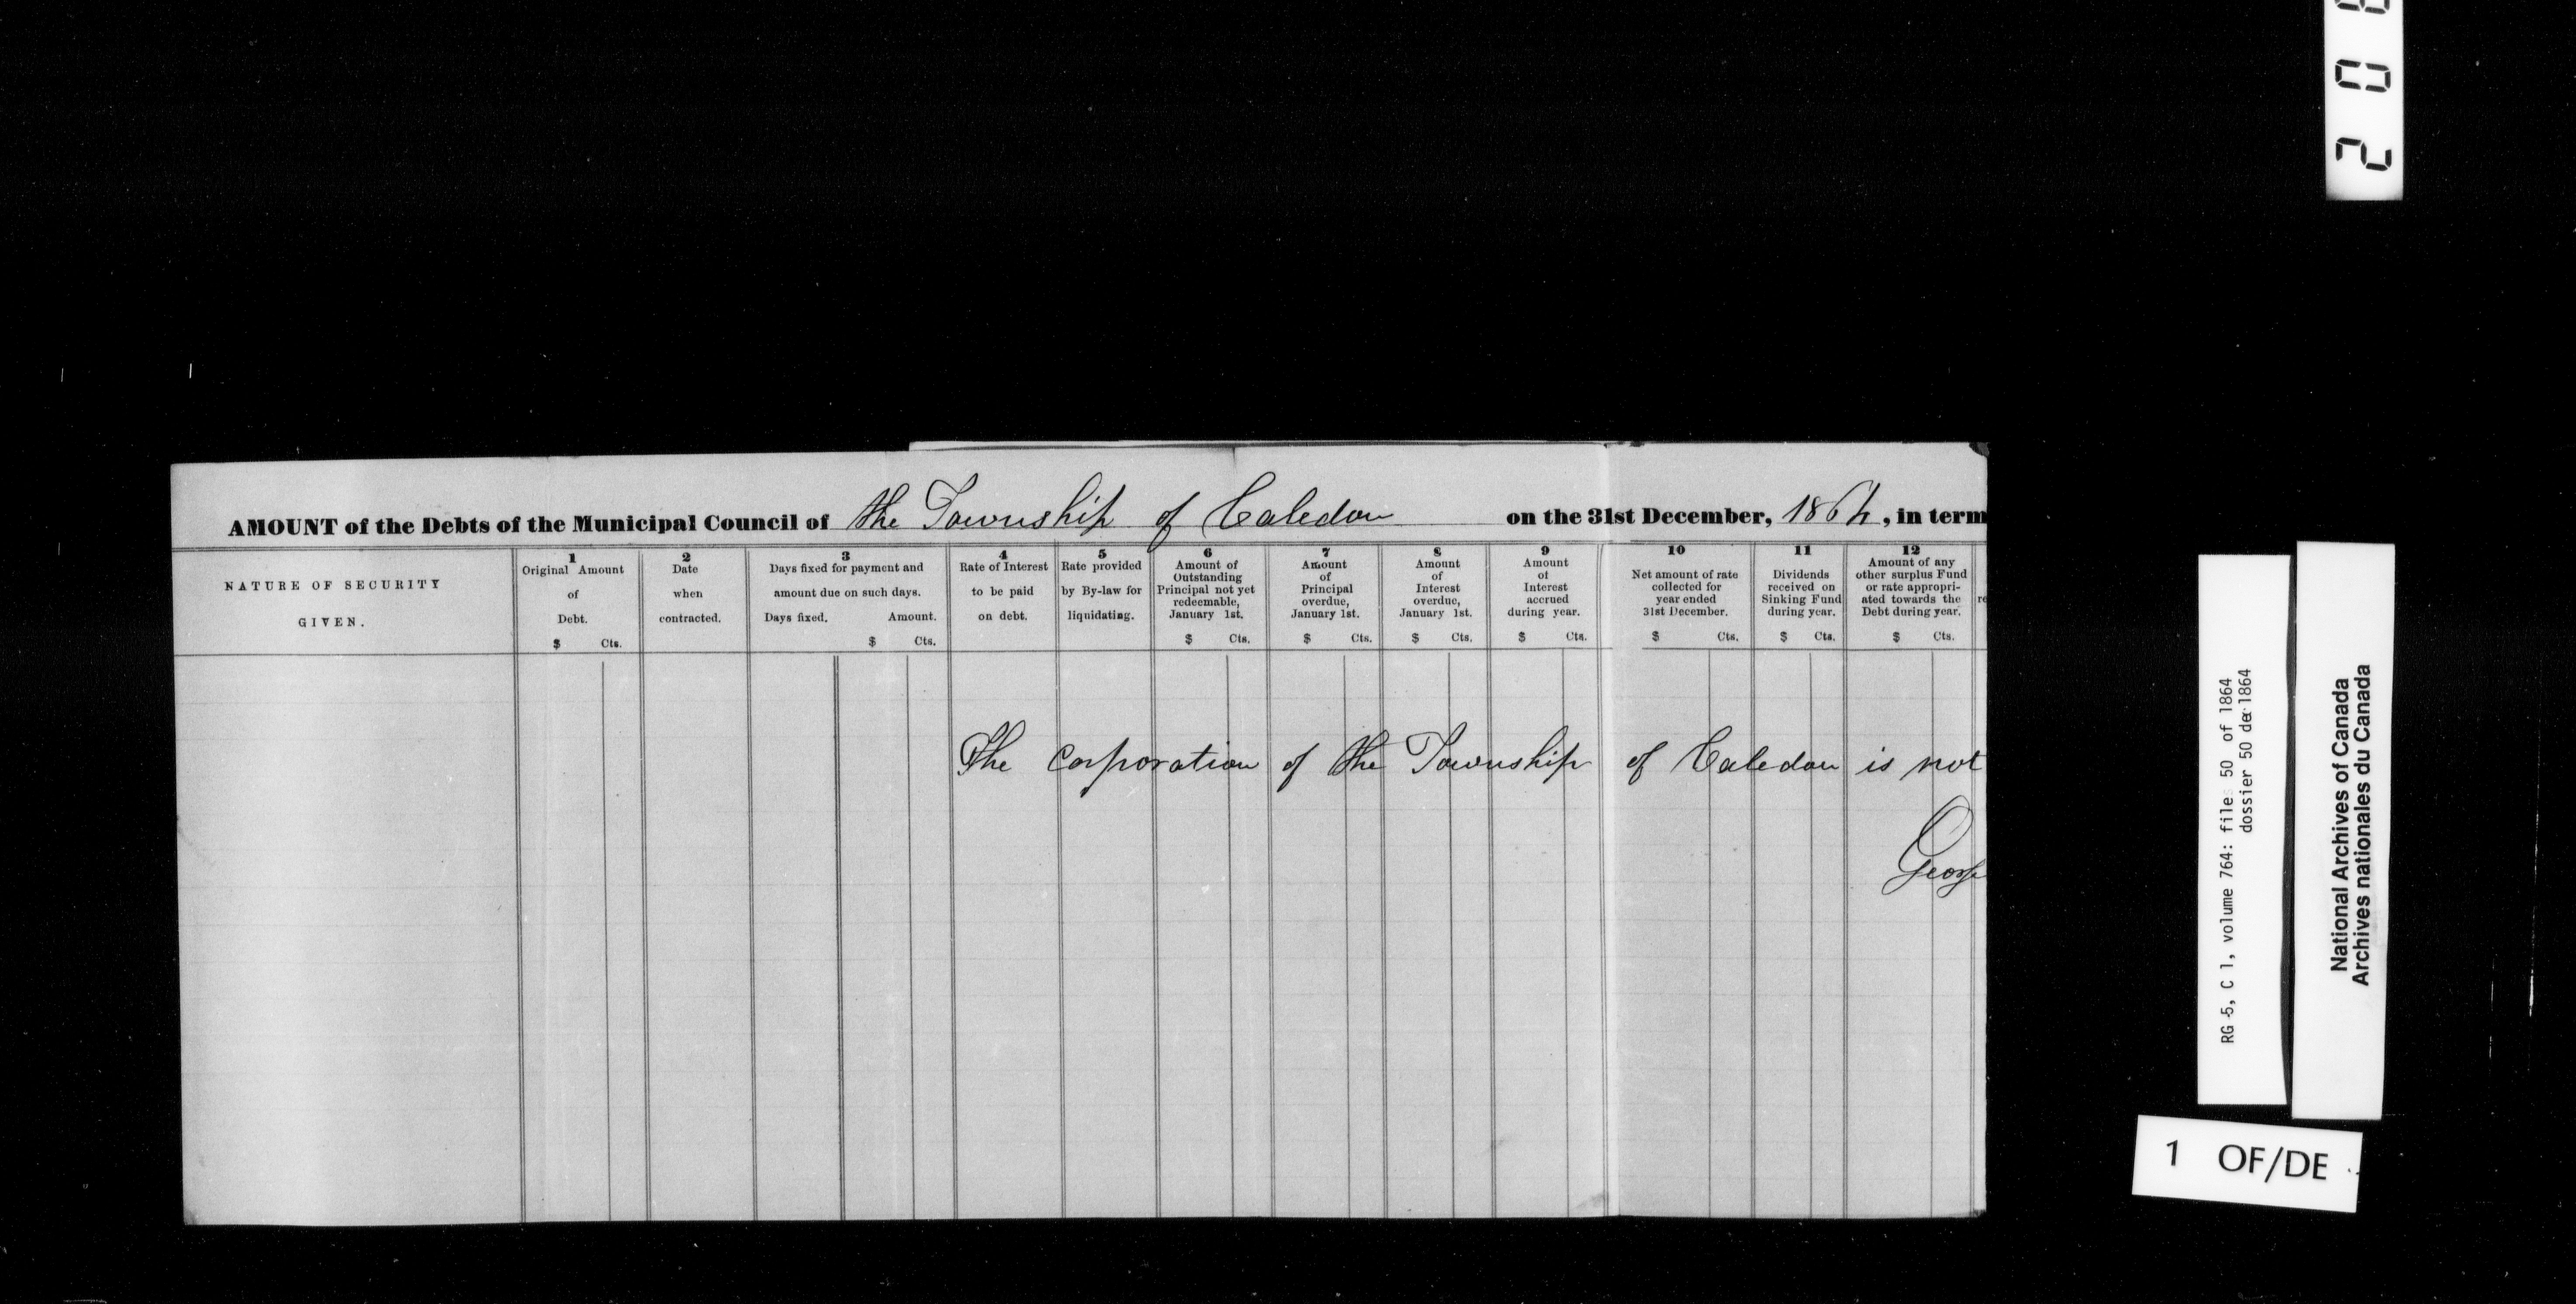 AMOUNT of the Debts of the Municipal Council of the Township of Caledon on the 31st December, 1864, in term
NATURE OF SECURITY
GIVEN.
1
Original Amount
of
Debt.
$ Cts.
2
Date
when
contracted.
3
Days fixed for payment and
amount due on such days.
Days fixed. Amount.
$ Cts.
4
Rate of Interest
to be paid
on debt.
5
Rate provided
by By-law for
liquidating.
6
Amount of
Outstanding
Principal not yet
redeemable,
January 1st.
$ Cts.
7
Amount
of
Principal
overdue,
January 1st.
$ Cts.
8
Amount
of
Interest
overdue,
January 1st.
$ Cts.
9
Amount
of
Interest
accrued
during year.
$ Cts.
10
Net amount of rate
collected for
year ended
31st December.
$ Cts.
11
Dividends
received on
Sinking Fund
during year.
$ Cts.
12
Amount of any
other surplus Fund
or rate appropri-
ated towards the
Debt during year.
$ Cts.
re
The Corporation of the Township of Caledon is not
Georg
RG 5, C 1, volume 764: files 50 of 1864
dossier 50 de 1864
National Archives of Canada
Archives nationales du Canada
1 OF/DE
2 0